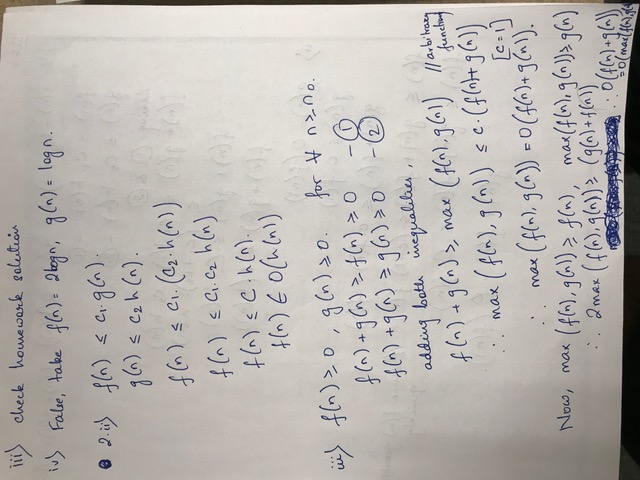 iii) check homework solution
iv) False, take f(n) = 2logn, g(n) = logn.
2.ii) f(n) ≤ c₁.g(n).
g(n) ≤ c₂ h(n).
f(n) ≤ c₁.(c₂.h(n))
f(n) ≤ c₁.c₂ h(n)
f(n) ≤ C.h(n).
f(n) ∈ O(h(n))
iii) f(n) ≥ 0, g(n) ≥ 0. for ∀ n ≥ n₀.
f(n) + g(n) ≥ f(n) ≥ 0 - ①
f(n) + g(n) ≥ g(n) ≥ 0 - ②
adding both inequalities,
f(n) + g(n) ≥ max (f(n), g(n)) // arbitrary function
∴ max (f(n), g(n)) ≤ c.(f(n)+g(n))
[c=1]
∴ max (f(n), g(n)) = O(f(n)+g(n)).
Now, max (f(n), g(n)) ≥ f(n), max(f(n), g(n)) ≥ g(n)
∴ 2max (f(n), g(n)) ≥ (g(n)+f(n))
∴ O(f(n)+g(n))
= O(max(f(n),g(n